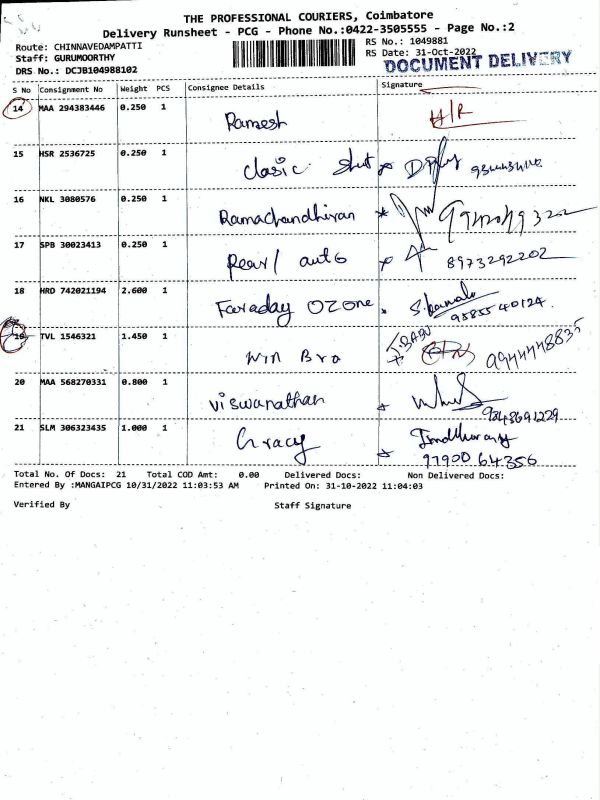 THE PROFESSIONAL COURIERS, Coimbatore
Delivery Runsheet - PCG - Phone No.:0422-3505555 - Page No.:2
Route: CHINNAVEDAMPATTI RS No.: 1049881
Staff: GURUMOORTHY RS Date: 31-Oct-2022
DRS No.: DCJB104988102 DOCUMENT DELIVERY
S No Consignment No Weight PCS Consignee Details Signature
14 MAA 294383446 0.250 1 Ramesh H/R
15 HSR 2536725 0.250 1 Clasic
16 NKL 3080576 0.250 1 Ramachandhiran
17 SPB 30023413 0.250 1 Pearl auto 8973292202
18 HRD 742021194 2.600 1 Faraday OZone 95855 40124
19 TVL 1546321 1.450 1 Win Bro J.BABU 9944448835
20 MAA 568270331 0.800 1 Viswanathan 9343691229
21 SLM 306323435 1.000 1 Gracy 97900 64356
Total No. Of Docs: 21 Total COD Amt: 0.00 Delivered Docs: Non Delivered Docs:
Entered By :MANGAIPCG 10/31/2022 11:03:53 AM Printed On: 31-10-2022 11:04:03
Verified By Staff Signature